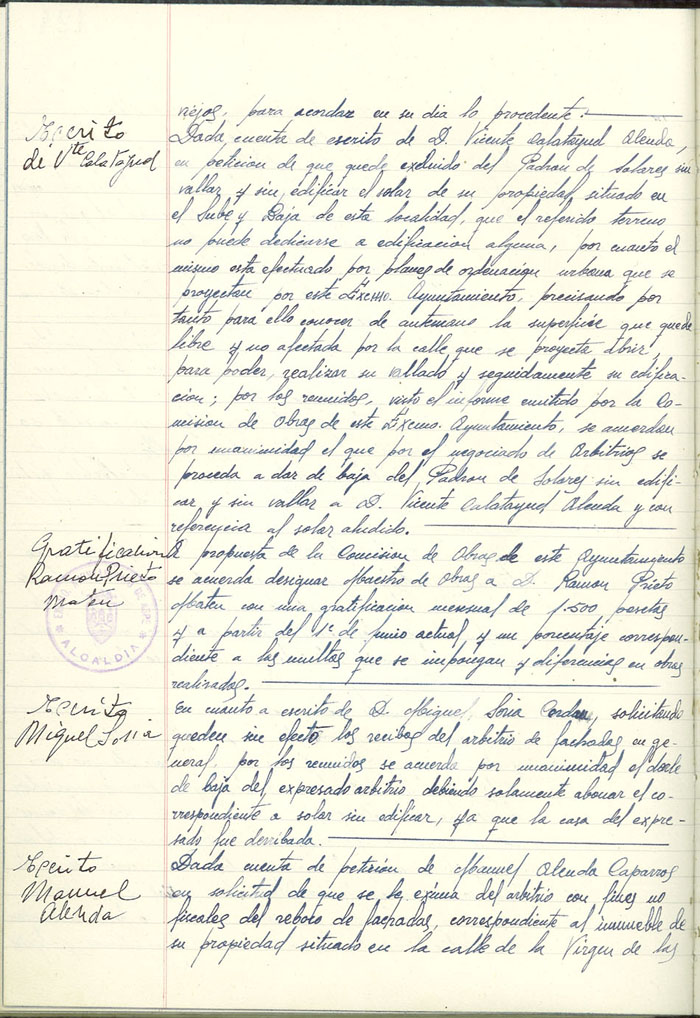 viejos, para acordar en su dia lo procedente.
Escrito
de Vte Calatayud
Dada cuenta de escrito de D. Vicente Calatayud Alenda,
en peticion de que quede excluido del Padron de Solares sin
vallar y sin edificar el solar de su propiedad situado en
el Sube y Baja de esta localidad, que el referido terreno
no puede dedicarse a edificacion alguna, por cuanto el
mismo esta efectuado por planes de ordenacion urbana que se
proyectan por este Excmo. Ayuntamiento, precisando por
tanto para ello conocer de antemano la superficie que quede
libre y no afectada por la calle que se proyecta abrir,
para poder, realizar su vallado y seguidamente su edifica-
cion; por los reunidos, visto el informe emitido por la Co-
mision de Obras de este Excmo. Ayuntamiento, se acuerdan
por unanimidad el que por el negociado de Arbitrios se
proceda a dar de baja del Padron de Solares sin edifi-
car y sin vallar a D. Vicente Calatayud Alenda y con
referencia al solar aludido.
Gratificacion
Ramon Prieto
Maten
ALCALDIA
A propuesta de la Comision de Obras de este Ayuntamiento
se acuerda designar Maestro de Obras a D. Ramon Prieto
Maten con una gratificacion mensual de 1.500 pesetas
y a partir del 1º de Junio actual, y un porcentaje correspon-
diente a las multas que se impongan y diferencias en obras
realizadas.
Escrito
Miguel Soria
En cuanto a escrito de D. Miguel Soria Cerdan, solicitando
queden sin efecto los recibos del arbitrio de fachadas en ge-
neral, por los reunidos se acuerda por unanimidad el darle
de baja del expresado arbitrio debiendo solamente abonar el co-
rrespondiente a solar sin edificar, ya que la casa del expre-
sado fue derribada.
Escrito
Manuel
Alenda
Dada cuenta de petición de Manuel Alenda Caparros
en solicitud de que se le exima del arbitrio con fines no
fiscales del reboco de fachadas, correspondiente al inmueble de
su propiedad situado en la calle de la Virgen de las